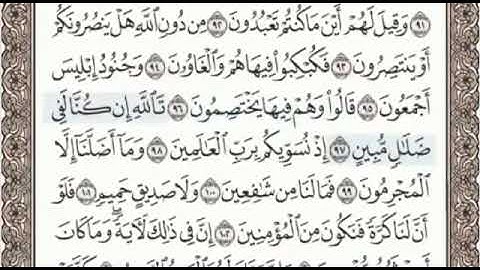 ٩١ وَقِيلَ لَهُمْ أَيْنَ مَا كُنتُمْ تَعْبُدُونَ ٩٢ مِن دُونِ ٱللَّهِ هَلْ يَنصُرُونَكُمْ
أَوْ يَنتَصِرُونَ ٩٣ فَكُبْكِبُوا۟ فِيهَا هُمْ وَٱلْغَاوُۥنَ ٩٤ وَجُنُودُ إِبْلِيسَ
أَجْمَعُونَ ٩٥ قَالُوا۟ وَهُمْ فِيهَا يَخْتَصِمُونَ ٩٦ تَٱللَّهِ إِن كُنَّا لَفِى
ضَلَٰلٍ مُّبِينٍ ٩٧ إِذْ نُسَوِّيكُم بِرَبِّ ٱلْعَٰلَمِينَ ٩٨ وَمَآ أَضَلَّنَآ إِلَّا
ٱلْمُجْرِمُونَ ٩٩ فَمَا لَنَا مِن شَٰفِعِينَ ١٠٠ وَلَا صَدِيقٍ حَمِيمٍ ١٠١ فَلَوْ
أَنَّ لَنَا كَرَّةً فَنَكُونَ مِنَ ٱلْمُؤْمِنِينَ ١٠٢ إِنَّ فِى ذَٰلِكَ لَـَٔايَةً ۖ وَمَا كَانَ